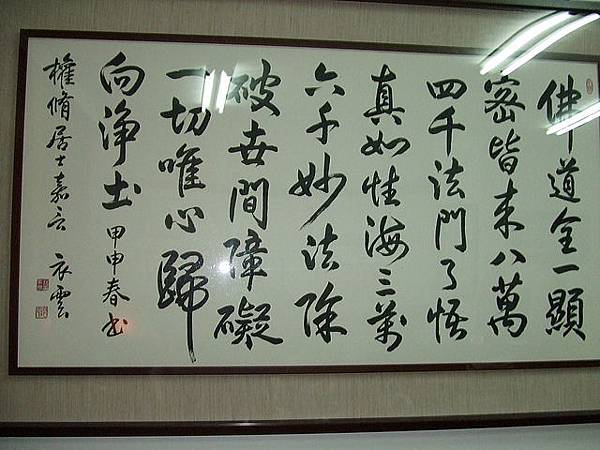 佛道全一顯
密皆來八萬
四千法門了悟
真如性海三萬
六千妙法除
破世間障礙
一切唯心歸
向淨土甲申春書
權脩居士嘉言 衣雲